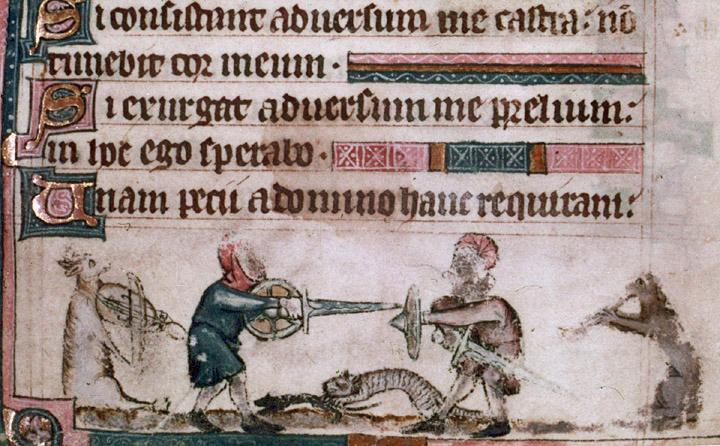 Si consistant aduersum me castra: nō
timebit cor meum ·
Si exurgat aduersum me prelium:
in hoc ego sperabo ·
Unam pecii a domino hanc requiram: